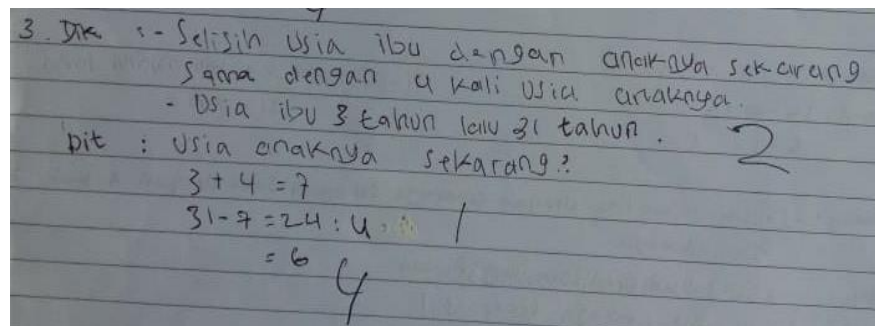 3. Dik : - Selisih usia ibu dengan anaknya sekarang
sama dengan 4 kali usia anaknya.
- Usia ibu 3 tahun lalu 31 tahun. 2
Dit : Usia anaknya sekarang?
3 + 4 = 7
31 - 7 = 24 : 4 1
= 6
4